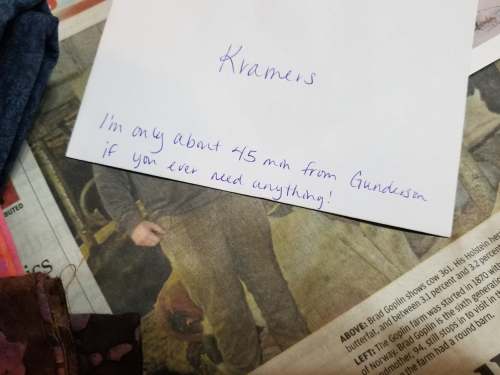 Kramers
I'm only about 45 min from Gundersen
if you ever need anything!
BUTED
ics
ABOVE: Brad Goplin shows cow 361. His Holstein her
butterfat, and between 3.1 percent and 3.2 percen
LEFT: The Goplin farm was started in 1870 with
of Norway. Brad Goplin is the sixth generatio
ndmother, 94, still stops in to visit. In th
the farm had a round barn.